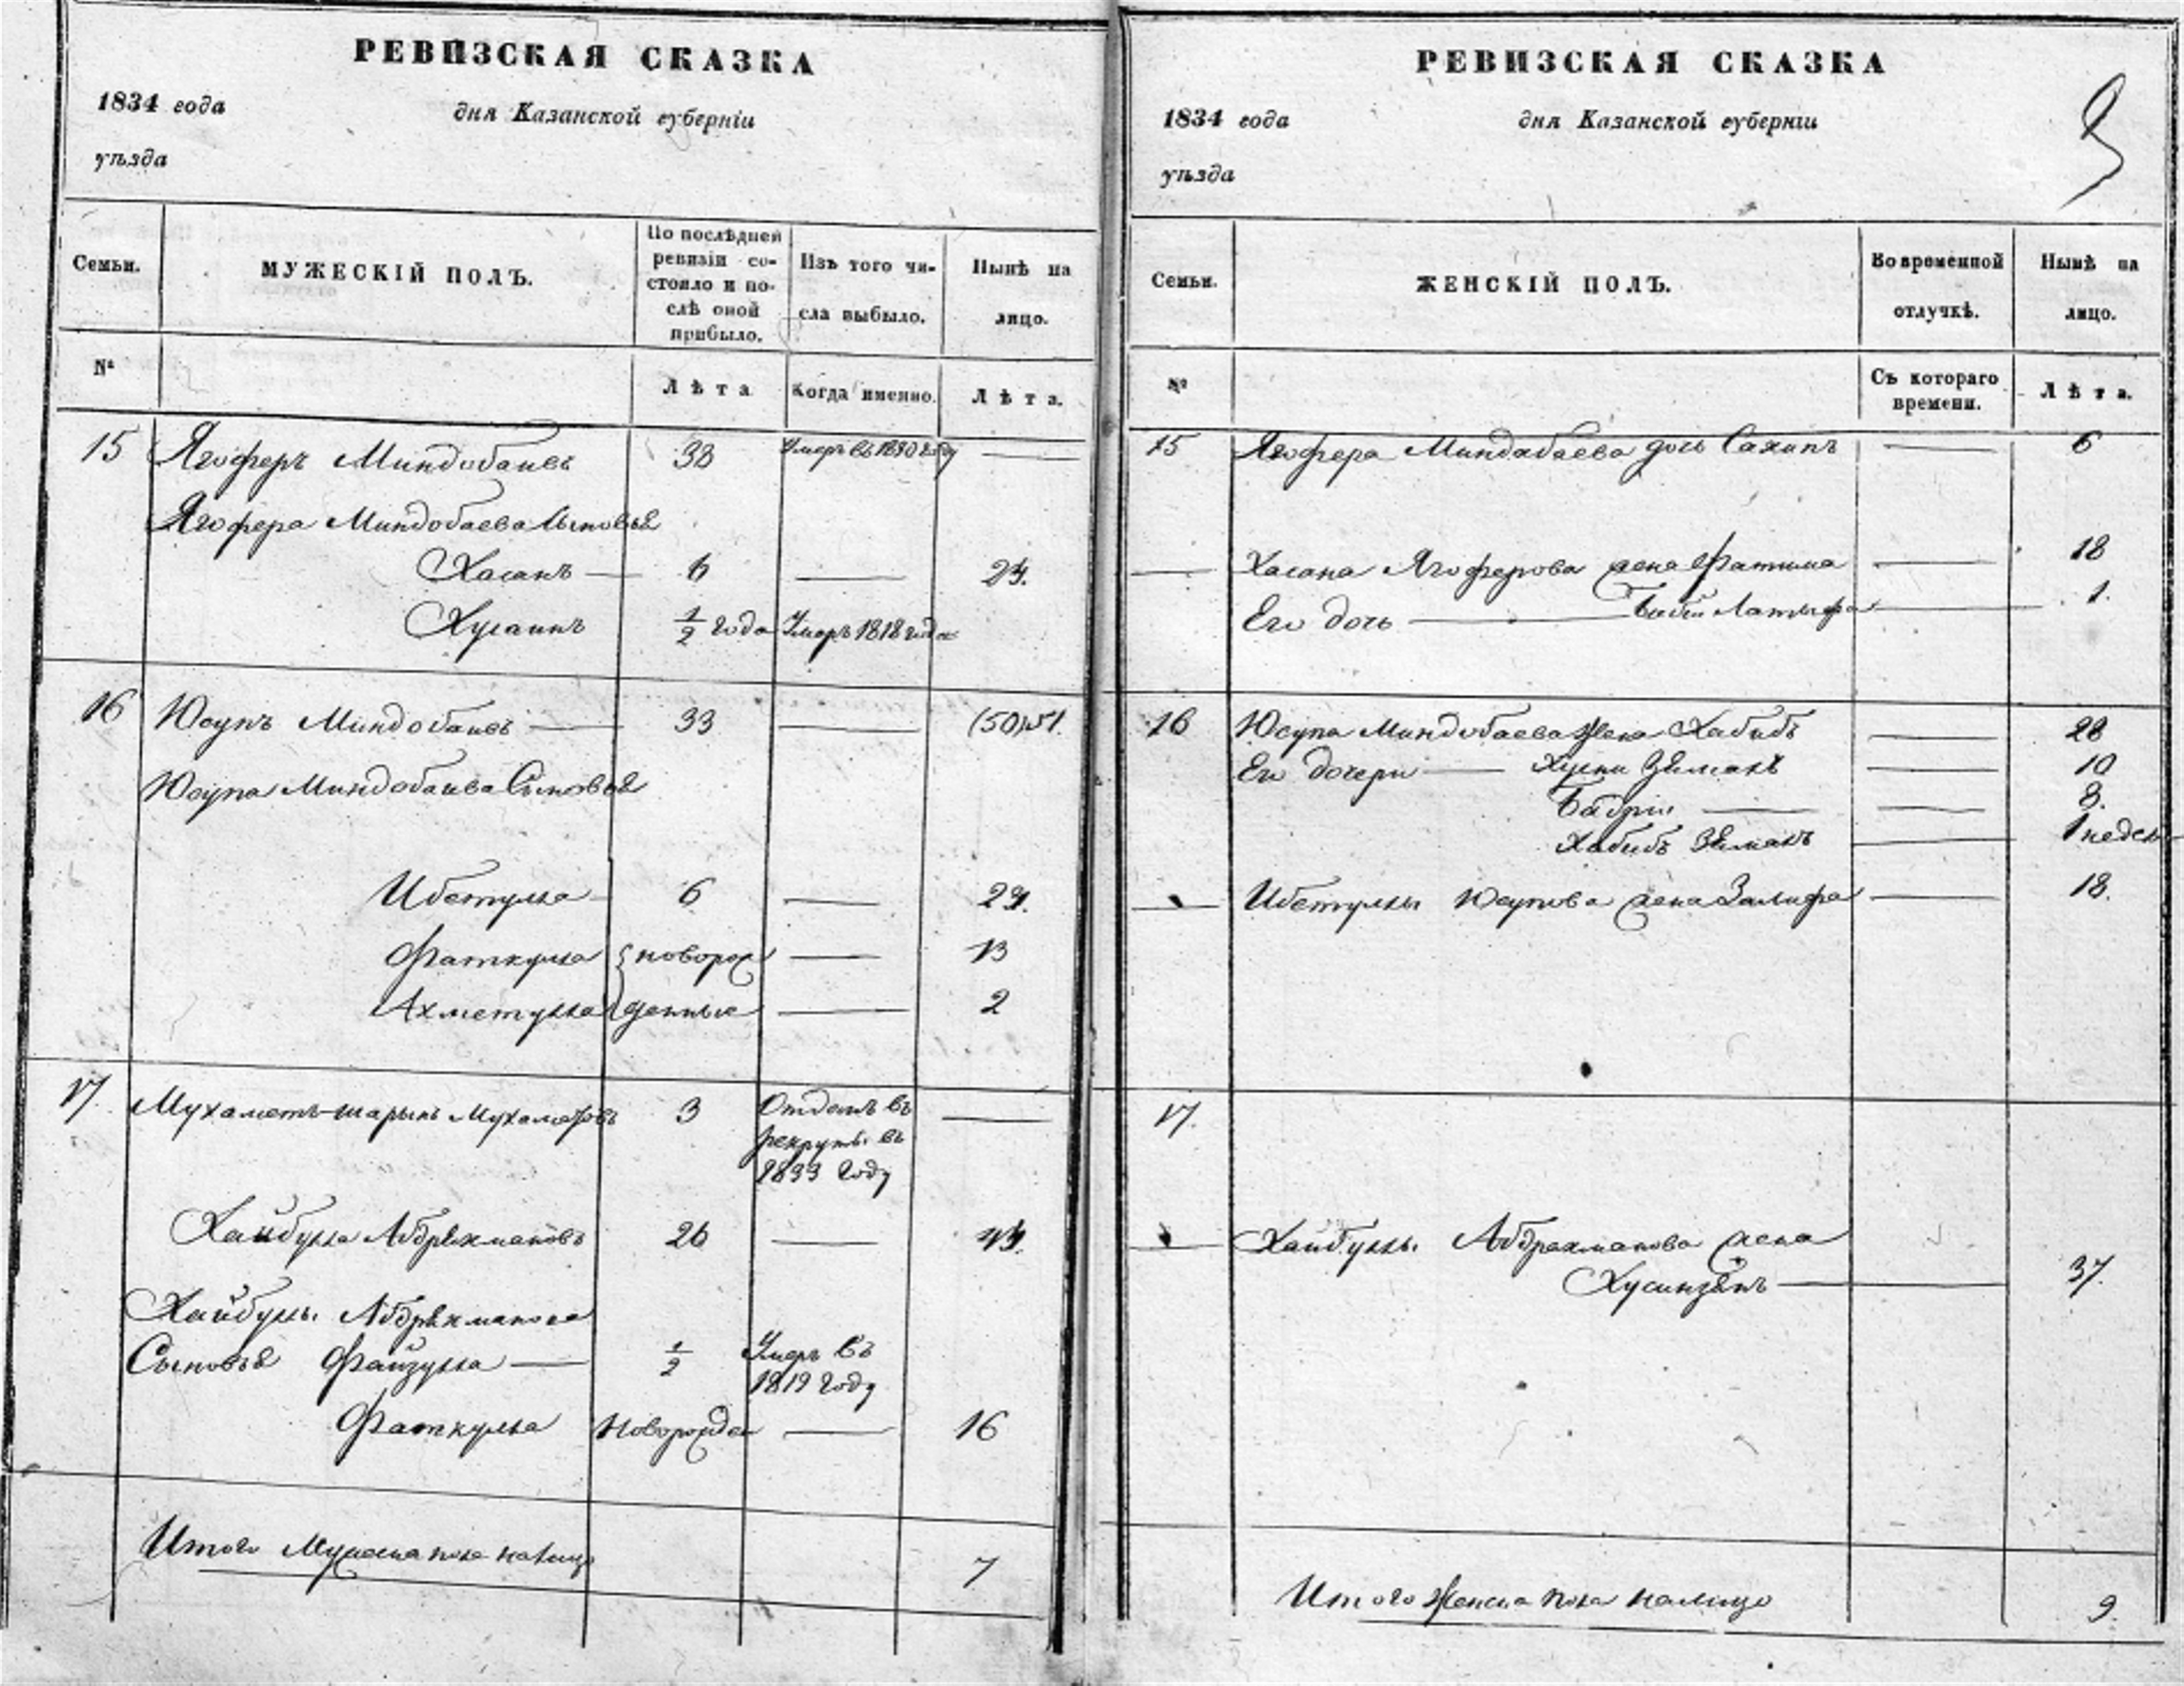 РЕВИЗСКАЯ СКАЗКА
1834 года дня Казанской губерніи
уѣзда
Семьи. МУЖЕСКІЙ ПОЛЪ. По послѣдней ревизіи состояло и послѣ оной прибыло. Изъ того числа выбыло. Нынѣ на лицо.
№ Лѣта Когда именно. Лѣта.
15 Ягоферъ Миндобаевъ 38 Умеръ въ году —
Ягофера Миндобаева Сыновья
Хасанъ — 6 — 24.
Хусаинъ 1/2 года Умеръ 1818 года
16 Юсупъ Миндобаевъ — 33 — (50) 51.
Юсупа Миндобаева Сыновья
Ибетулла 6 — 24.
Фаткулла { новорож — 13
Ахметулла { денные — 2
17. Мухаметъ-шарыпъ 3 Отданъ въ —
рекруты въ
1833 году
Хайбулла Абдрѣхмановъ 26 —
Хайбуллы Абдрѣхманова
Сыновья Файзулла — 1/2 Умеръ въ
1819 году
Фаткулла Новорожден — 16
Итого Мужеска пола налицо 7
РЕВИЗСКАЯ СКАЗКА
1834 года дня Казанской губерніи
уѣзда
3
Семьи. ЖЕНСКІЙ ПОЛЪ. Во временной отлучкѣ. Нынѣ на лицо.
№ Съ котораго времени. Лѣта.
15 Ягофера Миндабаева дочь Сахипъ — 6
— Хасана Ягоферова жена Фатима — 18
Его дочь — Биби Латыфа — 1.
16 Юсупа Миндобаева Жена Хабибъ — 28
Его дочери — Хусни Зѣмалъ — 10
Бадри — — 8.
Хабибъ Зѣмалъ — 1 недел
— Ибетуллы Юсупова жена Залифа — 18.
17.
— Хайбуллы Абдрахманова жена
Хусинзѣпъ — 37.
Итого Женска пола налицо 9.